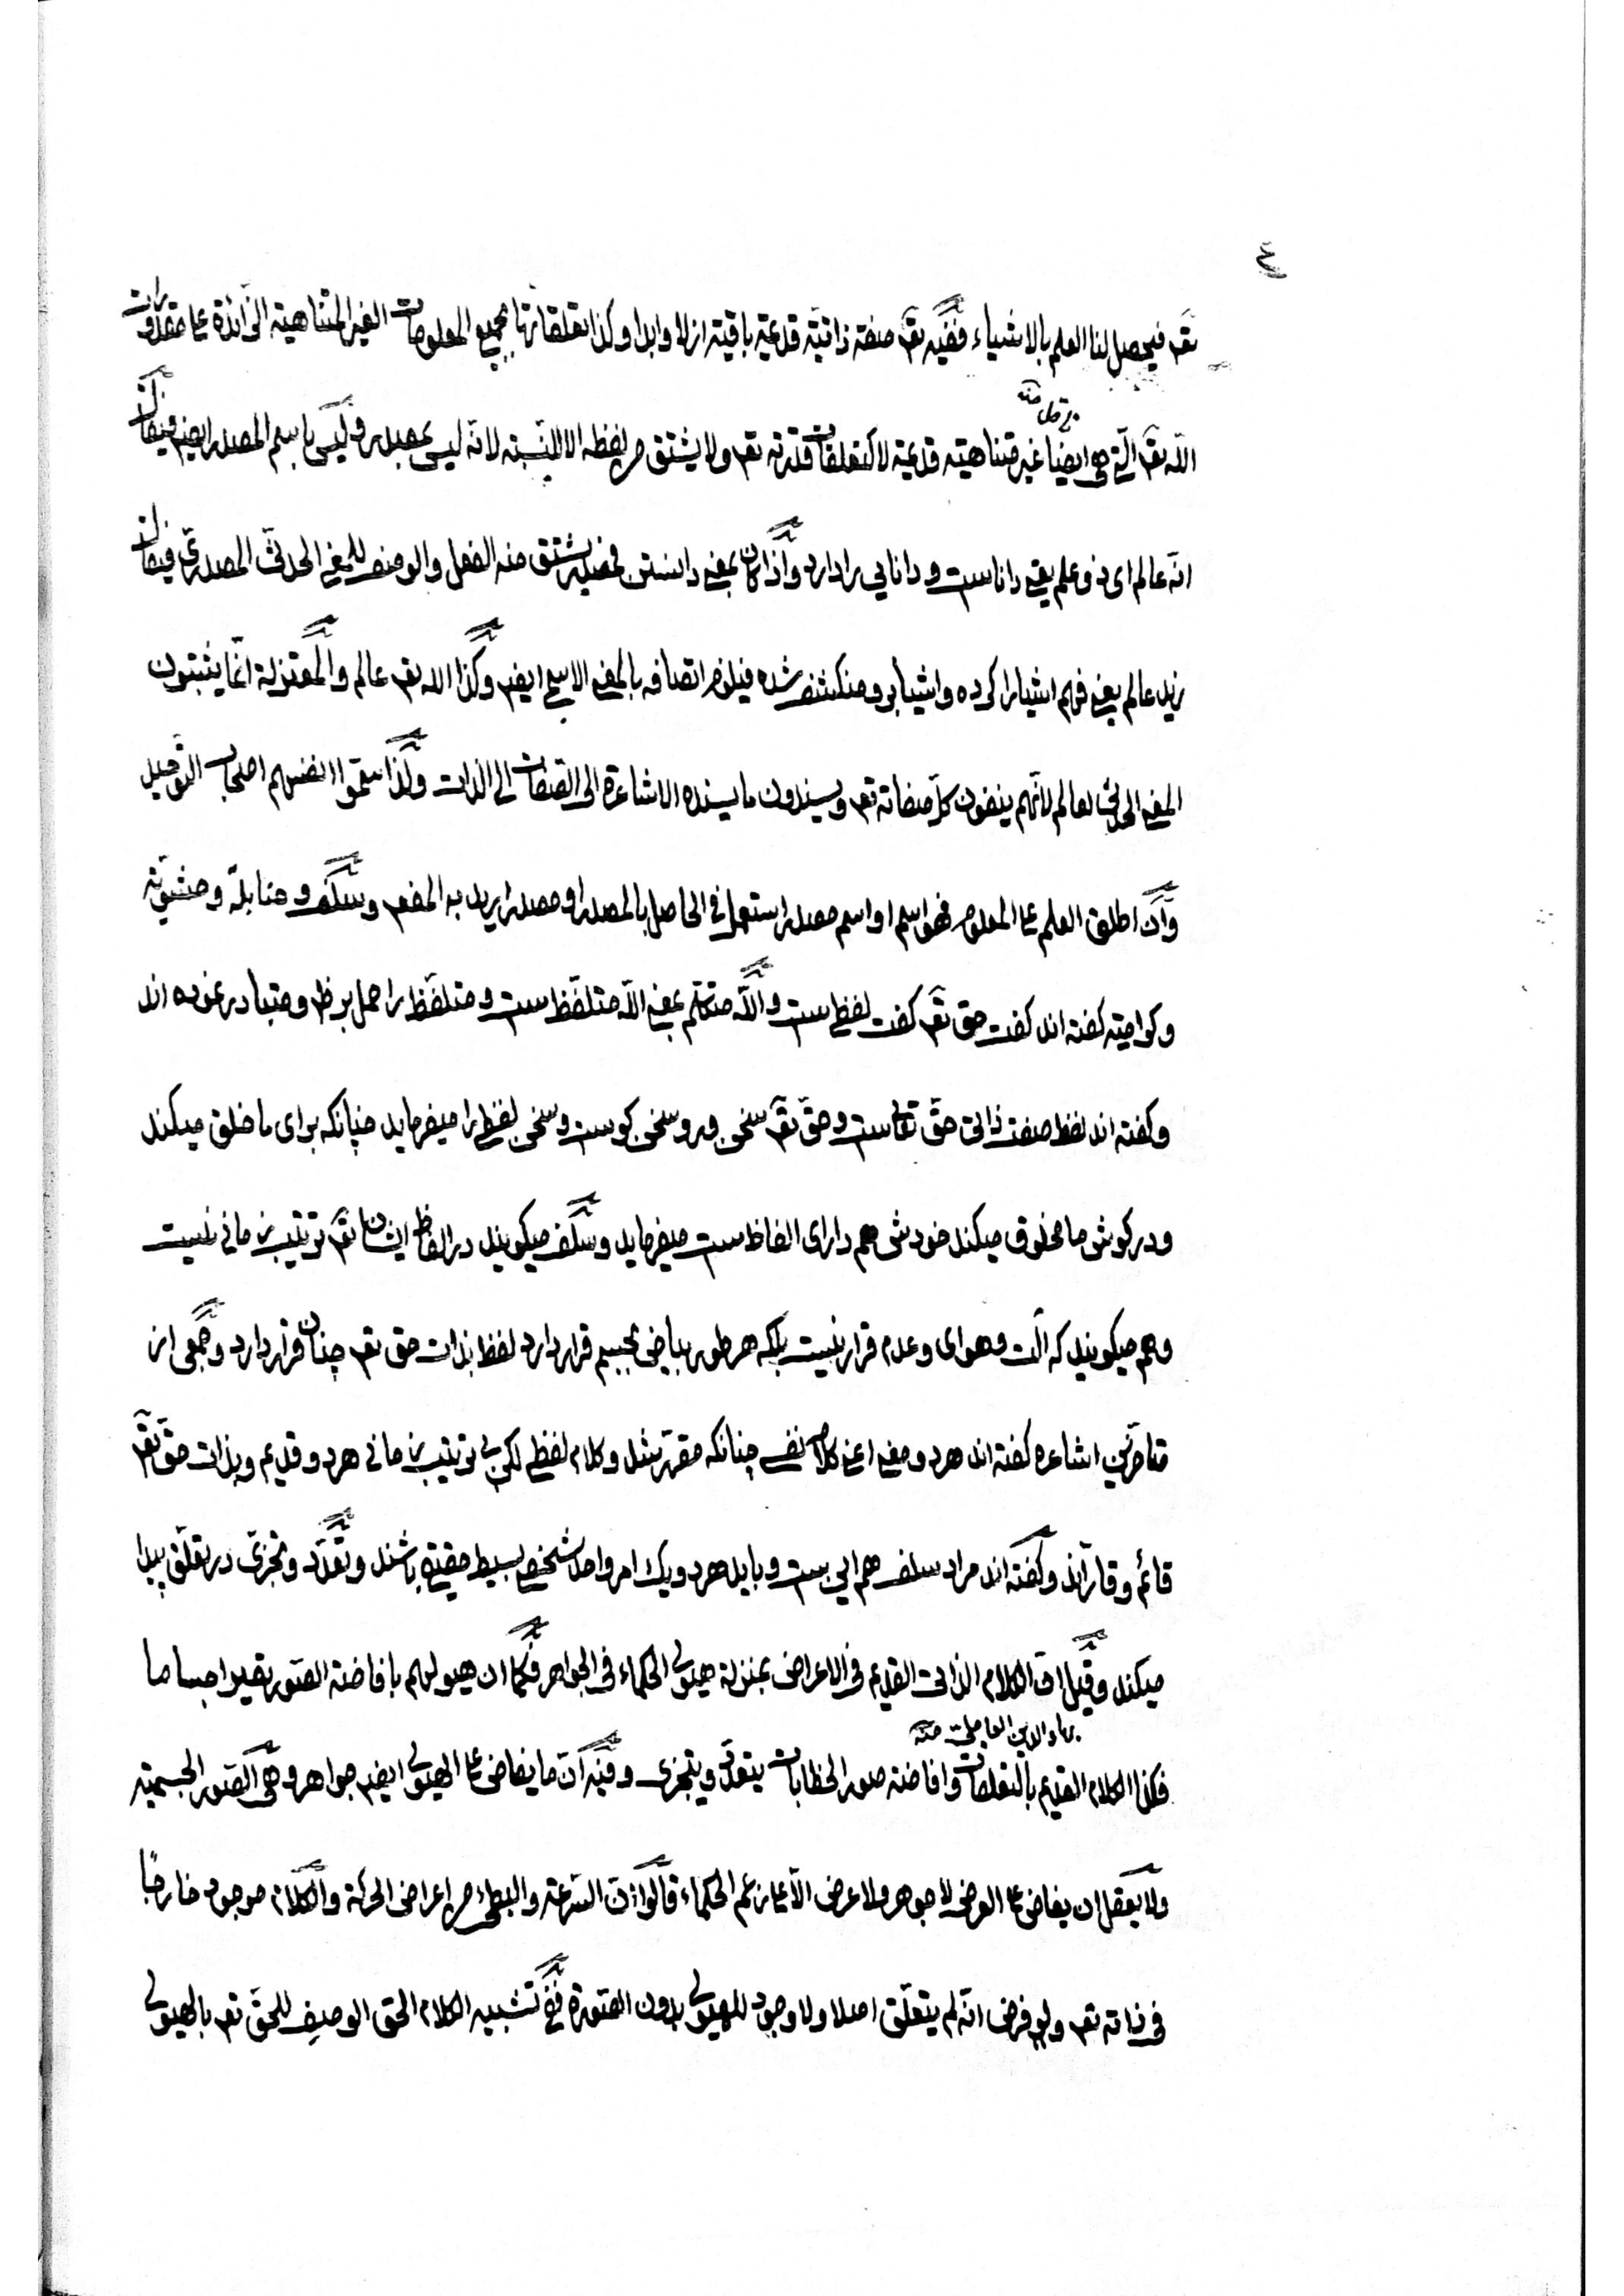 ٤
تع فيحصل لنا العلم بالاشياء ففيه تع صفة ذاتية قديمة باقية ازلا وابدا وكذا تعلقاتها بجميع المعلومات الغير المتناهية الزائدة على مقدورات
الله تع التي هي ايضا غير متناهية قديمة لا كتعلقات قدرته تع ولا يشتق من لفظه الا للنسبة لانه ليس بمصدر وليس باسم المصدر ايضم فيقال
انه عالم اى ذو علم يعنى داناست و دانايى را دارد واذا كان بمعنى دانستن فمصدر يشتق منه الفعل والوصف للمعنى الحدثى المصدرى فيقال
زيد عالم يعنى فهم اشيا را كرده واشيا برو منكشف شده فيلزم اتصافه بالمعنى الاسمى ايضم وكذا الله تع عالم والمعتزلة انما يثبتون
المعنى الحدثى لعالم لانهم ينفون كل صفاته تع ويسندون ما يسنده الاشاعرة الى الصفات الى الذات ولذا سموا انفسهم اصحاب التوحيد
وان اطلق العلم على المعلوم فهو اسم او اسم مصدر استعمل فى الحاصل بالمصدر او مصدر اريد به المفعم وسلف و حنابلة و حشوية
وكرامية كفته اند كفت حق تع كفت لفظى ست والله متكلم بمعنى الله متلفظ ست و متلفظ را حمل بر ظ و متبادر نموده اند
وكفته اند لفظ صفت ذاتى حق تعاست وحق تع سخن ور و سخن كوست و سخن لفظى را ميفرمايد چنانكه براى ما خلق ميكند
ودر كوش ما مخلوق ميكند خودش هم داراى الفاظ ست ميفرمايد وسلف ميكويند در الفاظ ايشان تع ترتيب زمانى نيست
وهم ميكويند كه الت وهواى وعدم قرار نيست بلكه هر طور بياض بجسم قرار دارد لفظ بذات حق تع چنان قرار دارد وجمعى از
متاخرين اشاعره كفته اند هر دو معنى اعنى كلام نفسى چنانكه مقرر شد و كلام لفظى لكن بى ترتيب زمانى هر دو قديم وبذات حق تع
قائم وقار اند وكفته اند مراد سلف هم اين ست و بايد هر دو يك امر واحد شخصى بسيط حقيقى باشند وتعدد وتجزى در تعلق پيدا
ميكند وقيل ان الكلام الذاتى القديم فى الاعراض بمنزلة هيولى الحكماء فى الجواهر فكما ان هيولهم بافاضة الصور تصير اجساما
بهاء الدين العاملى منه
فكذا الكلام القديم بالتعلقات وافاضة صور الخطابات يتعدد ويتجزى وفيه ان ما يفاض على الهيولى ايضم جواهر وهى الصور الجسمية
ولا يعقل ان يفاض على العرض لا جوهر ولا عرض الا على زعم الحكماء قالوا ان السرعة والبطء من اعراض الحركة والكلام موجود خارجا
فى ذاته تع ولو فرض انه لم يتعلق اصلا ولا وجود للهيولى بدون الصورة ففى تشبيه الكلام الحق الوصف للحق تع بالهيولى